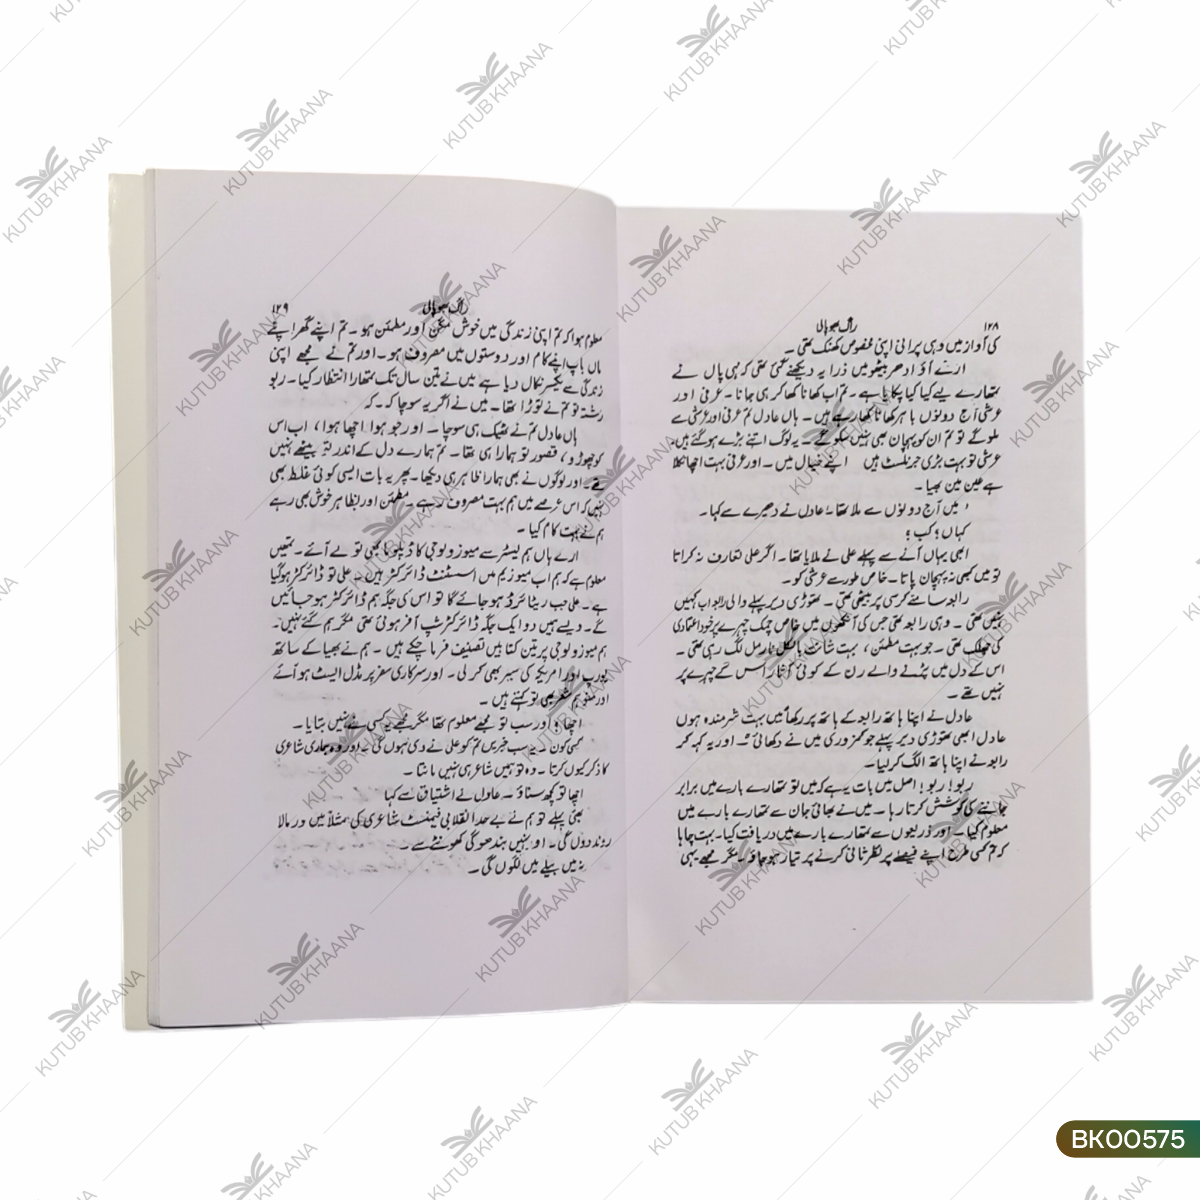 ۱۲۸
راگ بھوپالی
کی آواز میں وہی پرانی اپنی مخصوص کھنک تھی۔
ارے آؤ ادھر بیٹھو میں ذرا یہ دیکھنے گئی تھی کہ نبی پاں نے
تمھارے لیے کیا کیا پکایا ہے۔ تم اب کھانا کھا کر ہی جانا۔ عرفی اور
عرشی آج دونوں باہر کھانا کھا رہے ہیں۔ ہاں عادل تم عرفی اور عرشی سے
ملوگے تو تم ان کو پہچان بھی نہیں سکوگے۔ یہ لوگ اتنے بڑے ہوگئے ہیں۔
عرشی تو بہت بڑی جرنلسٹ ہیں اپنے خیال میں۔ اور عرفی بہت اچھا نکلا
ہے عین مین بھیا۔
میں آج دونوں سے ملا تھا۔ عادل نے دھیرے سے کہا۔
کہاں؟ کب؟
ابھی یہاں آنے سے پہلے علی نے ملایا تھا۔ اگر علی تعارف نہ کراتا
تو میں کبھی نہ پہچان پاتا۔ خاص طور سے عرشی کو۔
رابعہ سامنے کرسی پر بیٹھی تھی۔ تھوڑی دیر پہلے والی رابعہ اب کہیں
نہیں تھی۔ وہی رابعہ تھی جس کی آنکھوں میں خاص چمک چہرے پر خود اعتمادی
کی جھلک تھی۔ جو بہت مطمئن، بہت شانت بالکل نارمل لگ رہی تھی۔
اس کے دل میں پڑنے والے رن کے کوئی آثار اس کے چہرے پر
نہیں تھے۔
عادل نے اپنا ہاتھ رابعہ کے ہاتھ پر رکھا میں بہت شرمندہ ہوں
عادل ابھی تھوڑی دیر پہلے جو کمزوری میں نے دکھائی۔ اور یہ کہہ کر
رابعہ نے اپنا ہاتھ الگ کرلیا۔
ربو! ربو! اصل میں بات یہ ہے کہ میں تو تمھارے بارے میں برابر
جاننے کی کوشش کرتا رہا۔ میں نے بھائی جان سے تمھارے بارے میں
معلوم کیا۔ اور ذریعوں سے تمھارے بارے میں دریافت کیا۔ بہت چاہا
کہ تم کسی طرح اپنے فیصلے پر نظر ثانی کرنے پر تیار ہو جاؤ۔ مگر مجھے یہی
راگ بھوپالی
۱۲۹
معلوم ہوا کہ تم اپنی زندگی میں خوش مگن اور مطمئن ہو۔ تم اپنے گھر اپنے
ماں باپ اپنے کام اور دوستوں میں مصروف ہو۔ اور تم نے مجھے اپنی
زندگی سے یکسر نکال دیا ہے میں نے تین سال تک تمھارا انتظار کیا۔ ربو
رشتہ تو تم نے توڑا تھا۔ میں نے اگر یہ سوچا کہ۔ کہ
ہاں عادل تم نے ٹھیک ہی سوچا۔ اور جو ہوا اچھا ہوا، اب اس
کو چھوڑو، قصور تو ہمارا ہی تھا۔ تم ہمارے دل کے اندر تو بیٹھے نہیں
تھے۔ اور لوگوں نے بھی ہمارا ظاہر ہی دیکھا۔ پھر یہ بات ایسی کوئی غلط بھی
نہیں کہ اس عرصے میں ہم بہت مصروف رہے۔ مطمئن اور بظاہر خوش بھی رہے
ہم نے بہت کام کیا۔
ارے ہاں ہم لیسٹر سے میوزولوجی کا ڈپلوما بھی تو لے آئے۔ تمھیں
معلوم ہے کہ ہم اب میوزیم میں اسسٹنٹ ڈائرکٹر ہیں۔ علی تو ڈائرکٹر ہوگیا
ہے۔ علی جب ریٹائرڈ ہو جائے گا تو اس کی جگہ ہم ڈائرکٹر ہو جائیں
گے۔ ویسے ہیں دو ایک جگہ ڈائرکٹر شپ آفر ہوئی تھی مگر ہم گئے نہیں۔
ہم میوزولوجی پر تین کتابیں تصنیف فرما چکے ہیں۔ ہم نے بھیا کے ساتھ
یورپ اور امریکہ کی سیر بھی کرلی۔ اور سرکاری سفر پر مڈل ایسٹ ہو آئے
اور سنو ہم شعر بھی تو کہتے ہیں۔
اچھا وہ اور سب تو مجھے معلوم تھا مگر مجھے یہ کسی نے نہیں بتایا۔
کسی کون۔ یہ سب خبریں تم کو علی نے دی ہوں گی۔ اور وہ ہماری شاعری
کا ذکر کیوں کرتا۔ وہ تو ہمیں شاعر ہی نہیں مانتا۔
اچھا تو کچھ سناؤ۔ عادل نے اشتیاق سے کہا
بھئی پہلے تو ہم نے بے حد انقلابی فیمنٹ شاعری کی مثلاً میں ور مالا
روند دوں گی۔ اور نہیں بندھوگی کھونٹے سے۔
نہ میں بیلے میں لگوں گی۔
BK00575
KUTUB KHAANA